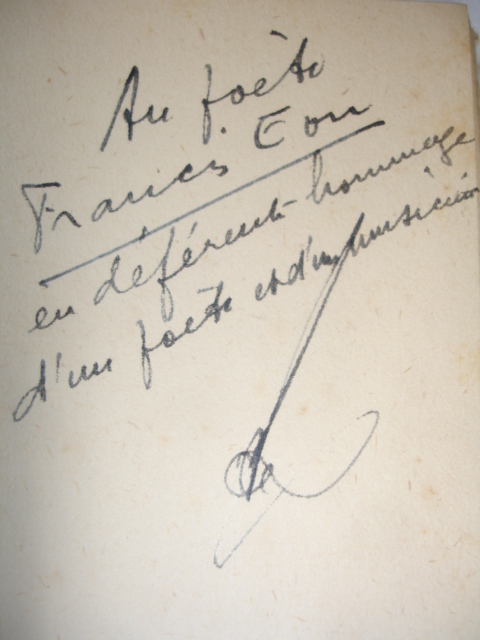 Au poète
Francis Eon
en déférent hommage
d'un poète et d'un musicien